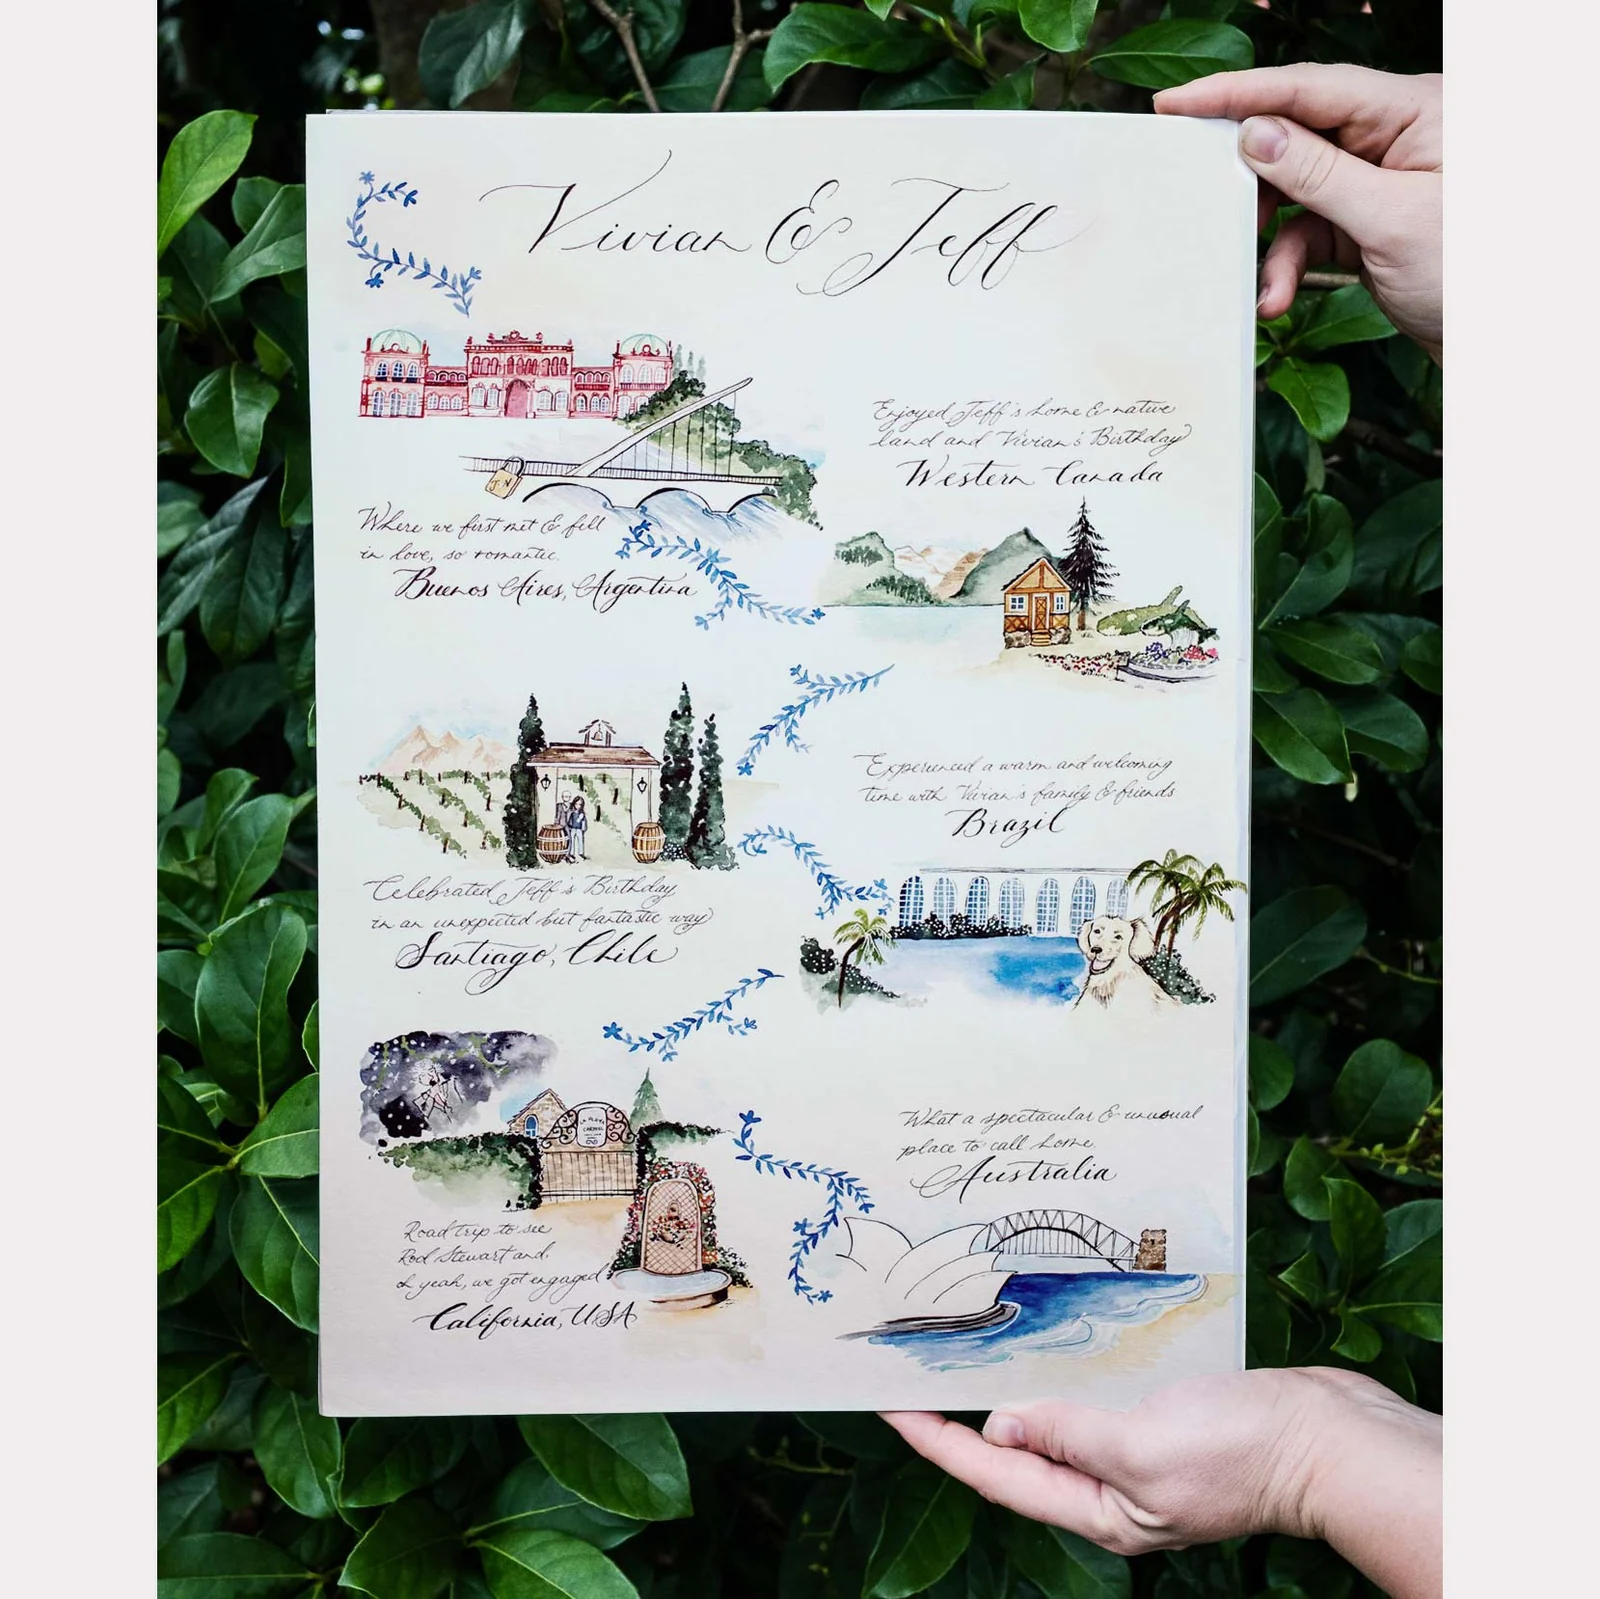 Vivian & Jeff
J.V
Where we first met & fell
in love, so romantic.
Buenos Aires, Argentina
Enjoyed Jeff's home & native
land and Vivian's Birthday
Western Canada
Celebrated Jeff's Birthday,
in an unexpected but fantastic way
Santiago, Chile
Experienced a warm and welcoming
time with Vivian's family & friends
Brazil
LA PLAYA
CARMEL
Road trip to see
Rod Stewart and,
oh yeah, we got engaged
California, USA
What a spectacular & unusual
place to call home.
Australia